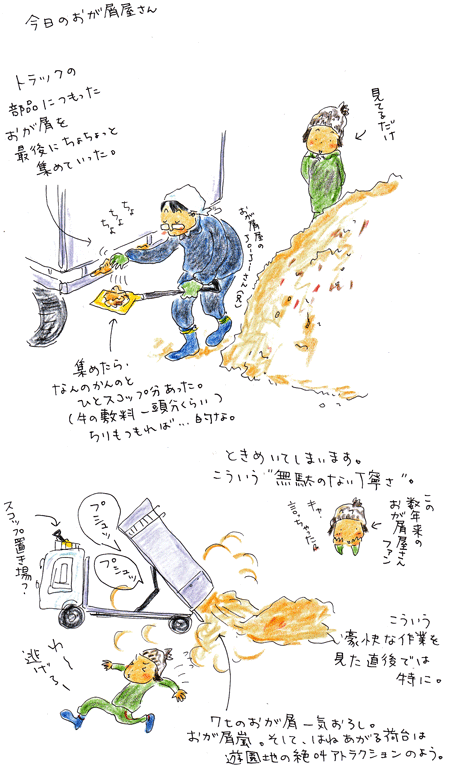 今日のおが屑屋さん
トラックの
部品につもった
おが屑を
最後にちょちょっと
集めていった。
見てるだけ
ちょ
ちょちょ
おが屑屋の
集めたら、
なんのかんのと
ひとスコップ分あった。
(牛の敷料一頭分くらい)
ちりもつもれば…的な。
ときめいてしまいます。
こういう“無駄のない丁寧さ”。
この
数年来の
おが屑屋さん
ファン
キャ
言っちゃった
スコップ置き場?
プシュッ
プシュッ
わ〜
逃げろ〜
こういう
豪快な作業を
見た直後では
特に。
7tのおが屑一気おろし。
おが屑嵐。そして、はねあがる荷台は
遊園地の絶叫アトラクションのよう。